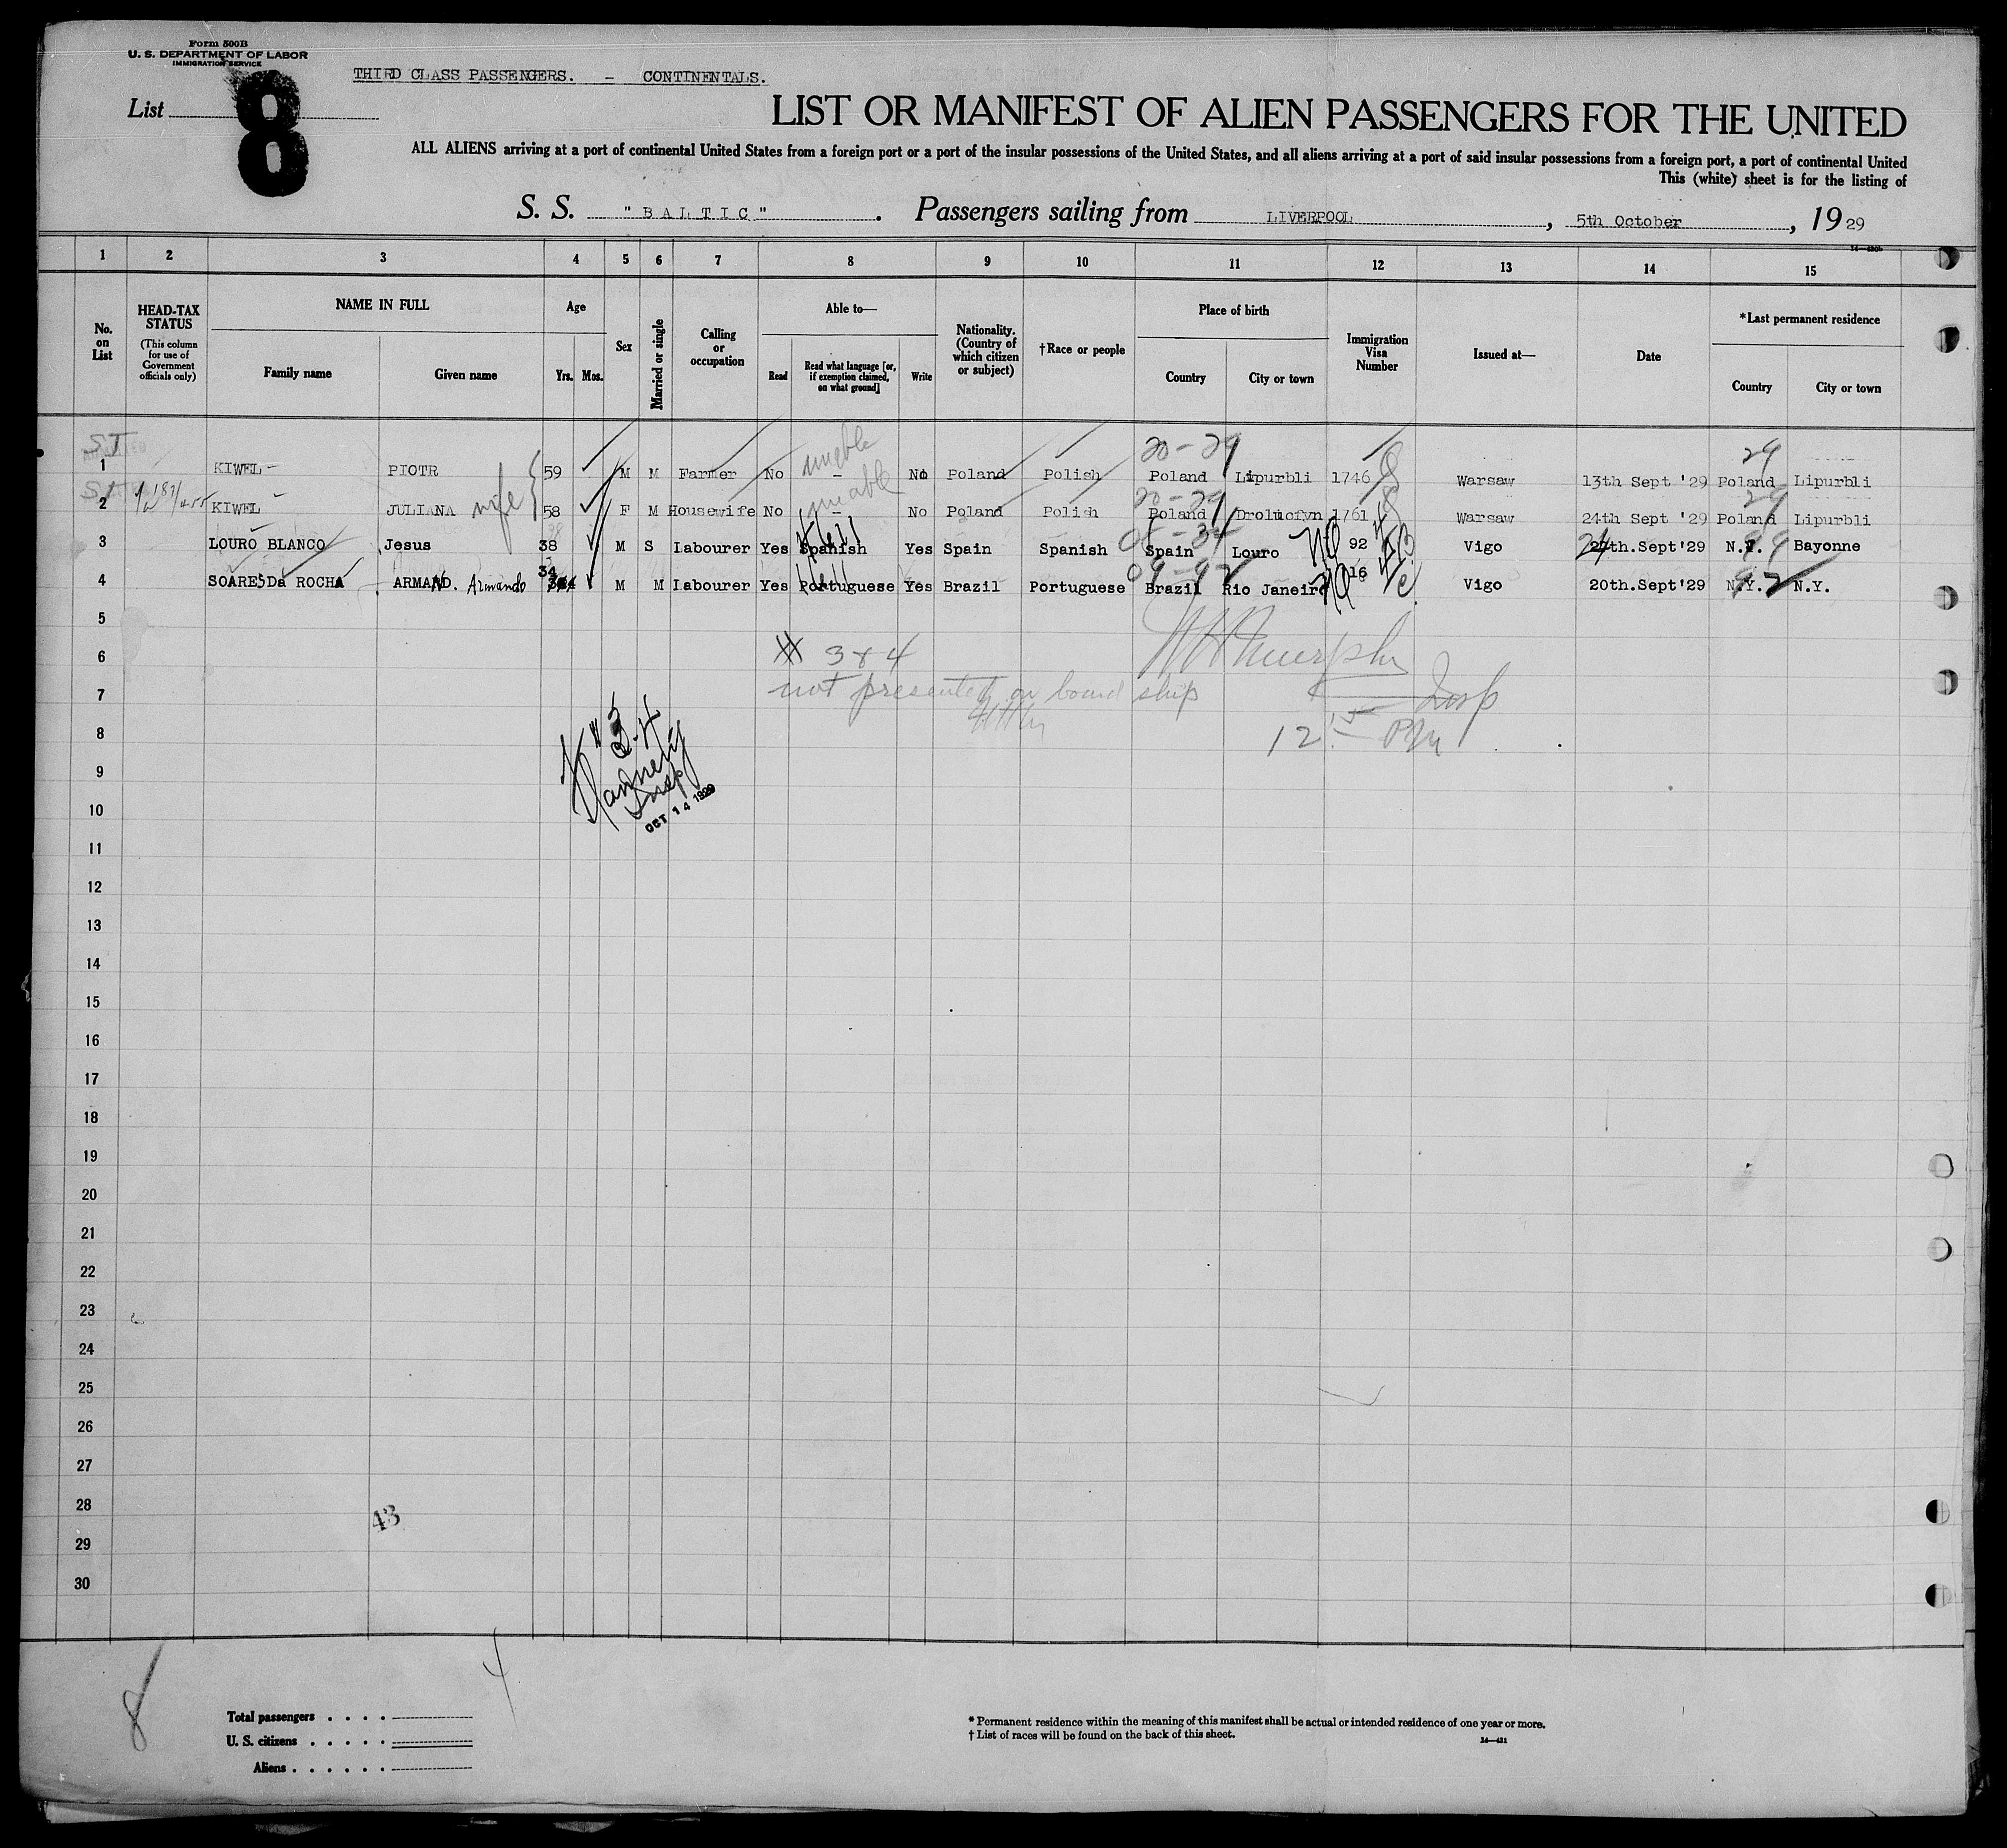 Form 500B
U. S. DEPARTMENT OF LABOR
IMMIGRATION SERVICE
THIRD CLASS PASSENGERS. - CONTINENTALS.
List 8
LIST OR MANIFEST OF ALIEN PASSENGERS FOR THE UNITED
ALL ALIENS arriving at a port of continental United States from a foreign port or a port of the insular possessions of the United States, and all aliens arriving at a port of said insular possessions from a foreign port, a port of continental United
This (white) sheet is for the listing of
S. S. "BALTIC". Passengers sailing from LIVERPOOL, 5th October, 1929
1 2 3 4 5 6 7 8 9 10 11 12 13 14 15
No. on List
HEAD-TAX STATUS
(This column for use of Government officials only)
NAME IN FULL
Family name Given name
Age
Yrs. Mos.
Sex
Married or single
Calling or occupation
Able to—
Read
Read what language [or, if exemption claimed, on what ground]
Write
Nationality. (Country of which citizen or subject)
†Race or people
Place of birth
Country City or town
Immigration Visa Number
Issued at—
Date
*Last permanent residence
Country City or town
ST 20-29 29
1 KIWEL PIOTR 59 M M Farmer No unable - No Poland Polish Poland Lipurbli 1746 Warsaw 13th Sept '29 Poland Lipurbli
20-29 29
2 KIWEL JULIANA wife 58 F M Housewife No unable - No Poland Polish Poland 1761 Warsaw 24th Sept '29 Poland Lipurbli
3 LOURO BLANCO Jesus 38 M S Labourer Yes Spanish Yes Spain Spanish Spain Louro 92 Vigo 24th.Sept'29 N.Y. Bayonne
4 SOARES Da ROCHA ARMAND. Armando 34 M M Labourer Yes Portuguese Yes Brazil Portuguese Brazil Rio Janeiro 16 Vigo 20th.Sept'29 N.Y. N.Y.
5
6 # 3 & 4
7 not presented on board ship Insp
8 12 15 PM
# 3-4
9
Insp
10 OCT 14 1929
11
12
13
14
15
16
17
18
19
20
21
22
23
24
25
26
27
28 43
29
30
8 4
Total passengers . . . .
U. S. citizens . . . . .
Aliens . . . . . .
* Permanent residence within the meaning of this manifest shall be actual or intended residence of one year or more.
† List of races will be found on the back of this sheet.
14—431